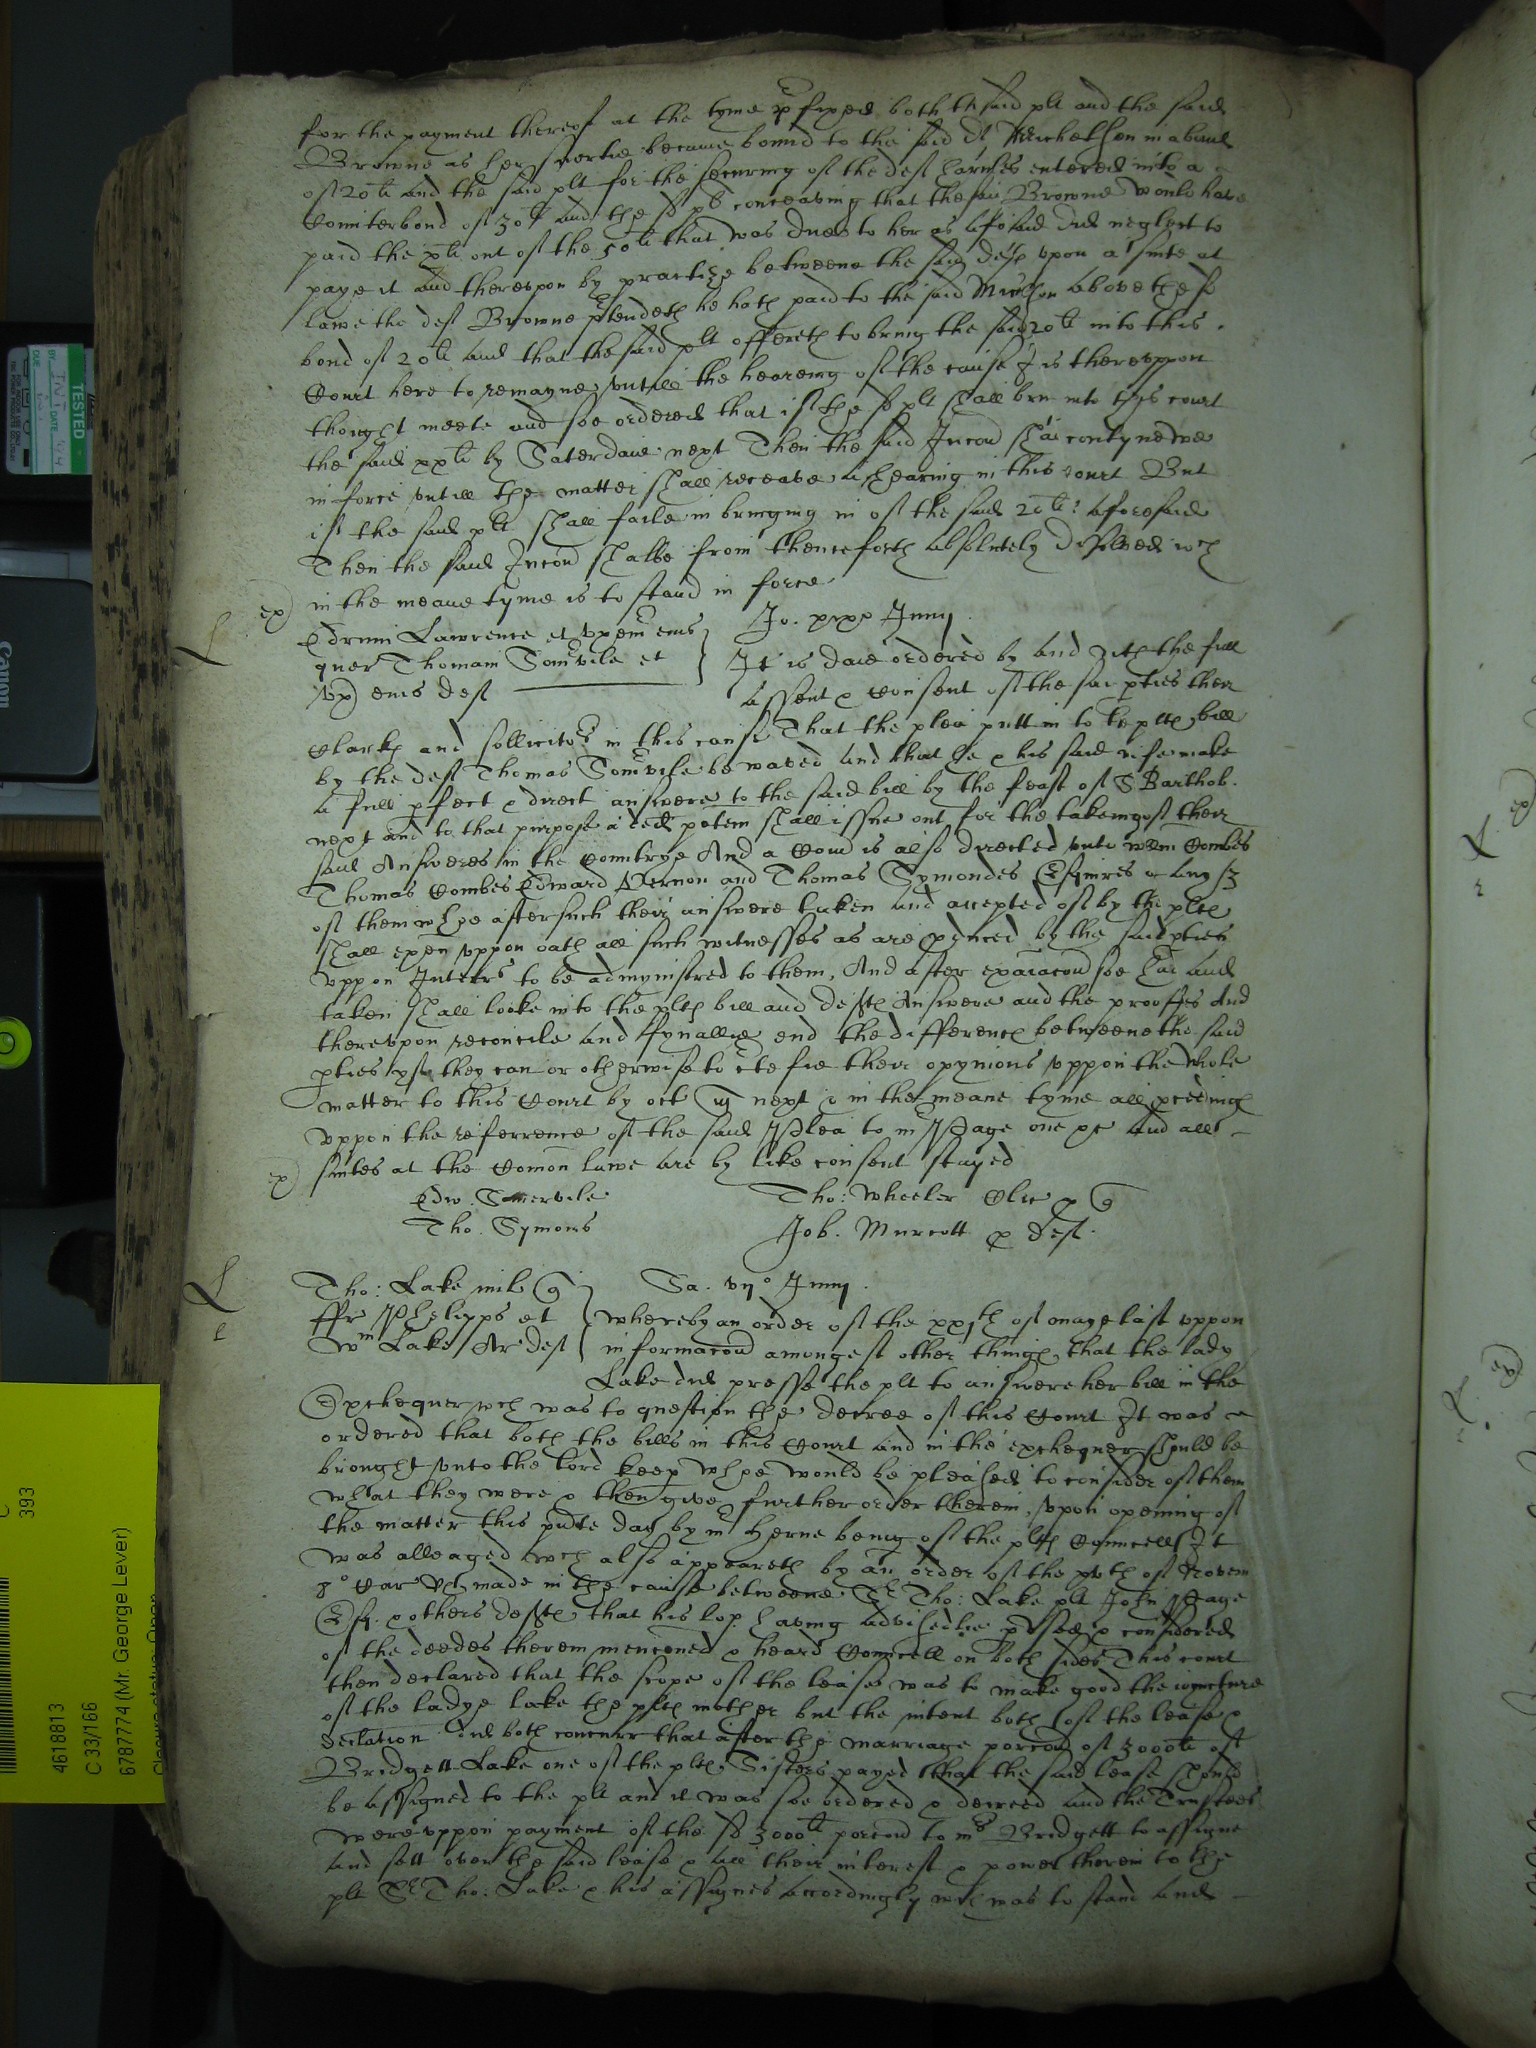 for the payment thereof at the tyme p fixed both th said plt and the said
Browne as her suertie became bound to the said Michelson in a bond
of 20li and the said plt for the securing of the deft entered into a
Counterbond of 30li And the sd plt conceaving that the said Browne would have
paid the xxli out of the 50li that was due to her as afosaid did neglect to
paye it and therevpon by practize betweene the said deft vpon a suite at
lawe the deft Browne ptendeth he hath paid to the said above the sd
bond of 20li and that the said plt offereth to bring the said 20li into this
Court here to remayne vntill the heareing of the cause It is therevppon
thought meete and soe ordered that if the sd plt shall brin into this court
the said xxli by Saterdaie next Then the said Iniuncon shal contynewe
in force vntill the matter shall receave a hearing in this court But
if the said plt shall faile in bringing in of the said 20li aforesaid
Then the said Iniuncon shalbe from thenceforth absolutely disolved wch
in the meane tyme is to stand in force
ex)
Edrum Lawrence et vxem eius
quer Thomam Somvile et
vx) eius deft
Jo. Junij
It is daie ordered by and with the full
assent & Consent of the sai pties their
Clarks and sollicitors in this cause That the plea putt in to the plts bill
by the deft Thomas Somvile be waved And that he & his said wife make
a full pfect & direct answere to the said bill by the feast of S Barthol.
next and to that purpose a ded potem shall issue out for the takeing of their
said Answeres in the Countrye And a Com is also directed vnto Willm Combes
Thomas Combes Edward Vernon and Thomas Symondes Esquires or any
of them whoe after such their answere taken and accepted of by the plts
shall exen vppon oath all such witnesses as are pduced by the said pties
vppon Interrs to be admynistred to them. And after exaiacon soe had and
taken shall looke into the plts bill and defts Answere and the prooffes And
therevpon reconcile and fynallie end the differences betweene the said
pties yf they can or otherwise to ctefie their opynions vppon the whole
matter to this Court by oct next & in the meane tyme all pceedings
vppon the referrence of the said Plea to mr Page one &c And all
suites at the Comon lawe are by like consent stayed
ex)
Edw. Somervile
Tho. Symons
Tho: Wheeler Cler p q
Job. Murcott p deft.
Tho: Lake mil q
ffr Phelipps et
Wm Lake Ar deft
Sa. vijo Junij.
whereby an order of the of maye last vppon
informacon amongest other things that the lady
Lake did presse the plt to answere her bill in the
Exchequer wch was to question the decree of this Court It was
ordered that both the bills in this Court and in the exchequer should be
brought vnto the lord keep whoe would be pleased to consider of them
what they were & then give further order therein, vpon opening of
the matter this pnte day by mr Herne being of the plts Councell It
was alleaged wch also appeareth by an order of the xvth of Novem
8o Car Rs made in the cause betweene Sr Tho: Lake plt John Page
Esq. & others defts that his lop. having advisedlie pused & considered
of the deedes therein mencioned & heard Councell on both sides This court
then declared that the scope of the lease was to make good the ioyncture
of the ladye lake the plts mother but the intent both of the lease &
declaration did both concurr that after the marriage porcon of 3000li of
Bridgett Lake one of the plts Sisters payed that the said lease should
be assigned to the plt and it was soe ordered & decreed and the Trustees
were vppon payment of the sd 3000li porcon to mrs Bridgett to assigne
and sett over the said lease & all their interest & power therein to the
plt Sr Tho: Lake & his assignes accordingly wch was to stand and
TESTED
Canon
393
4618813
C 33/166
6787774 (Mr. George Lever)